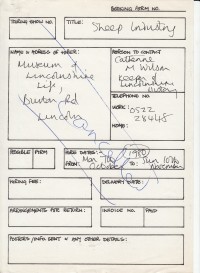 BOOKING FORM NO.
TOURING SHOW NO.
TITLE:
Sheep Industry
NAME & ADDRESS OF HIRER:
Museum of
Lincolnshire
Life,
Burton Rd
Lincoln
PERSON TO CONTACT
Catherine
M Wilson
Keeper of
Lincolnshire
History
TELEPHONE NO.
WORK: 0522
28448
HOME:
POSSIBLE
FIRM
HIRE DATES:
1980
FROM: Mon
October
TO: Sun 10th
November
HIRING FEE:
DELIVERY DATE:
ARRANGEMENTS FOR RETURN:
INVOICE NO.
PAID
POSTERS/INFO. SENT & ANY OTHER DETAILS: